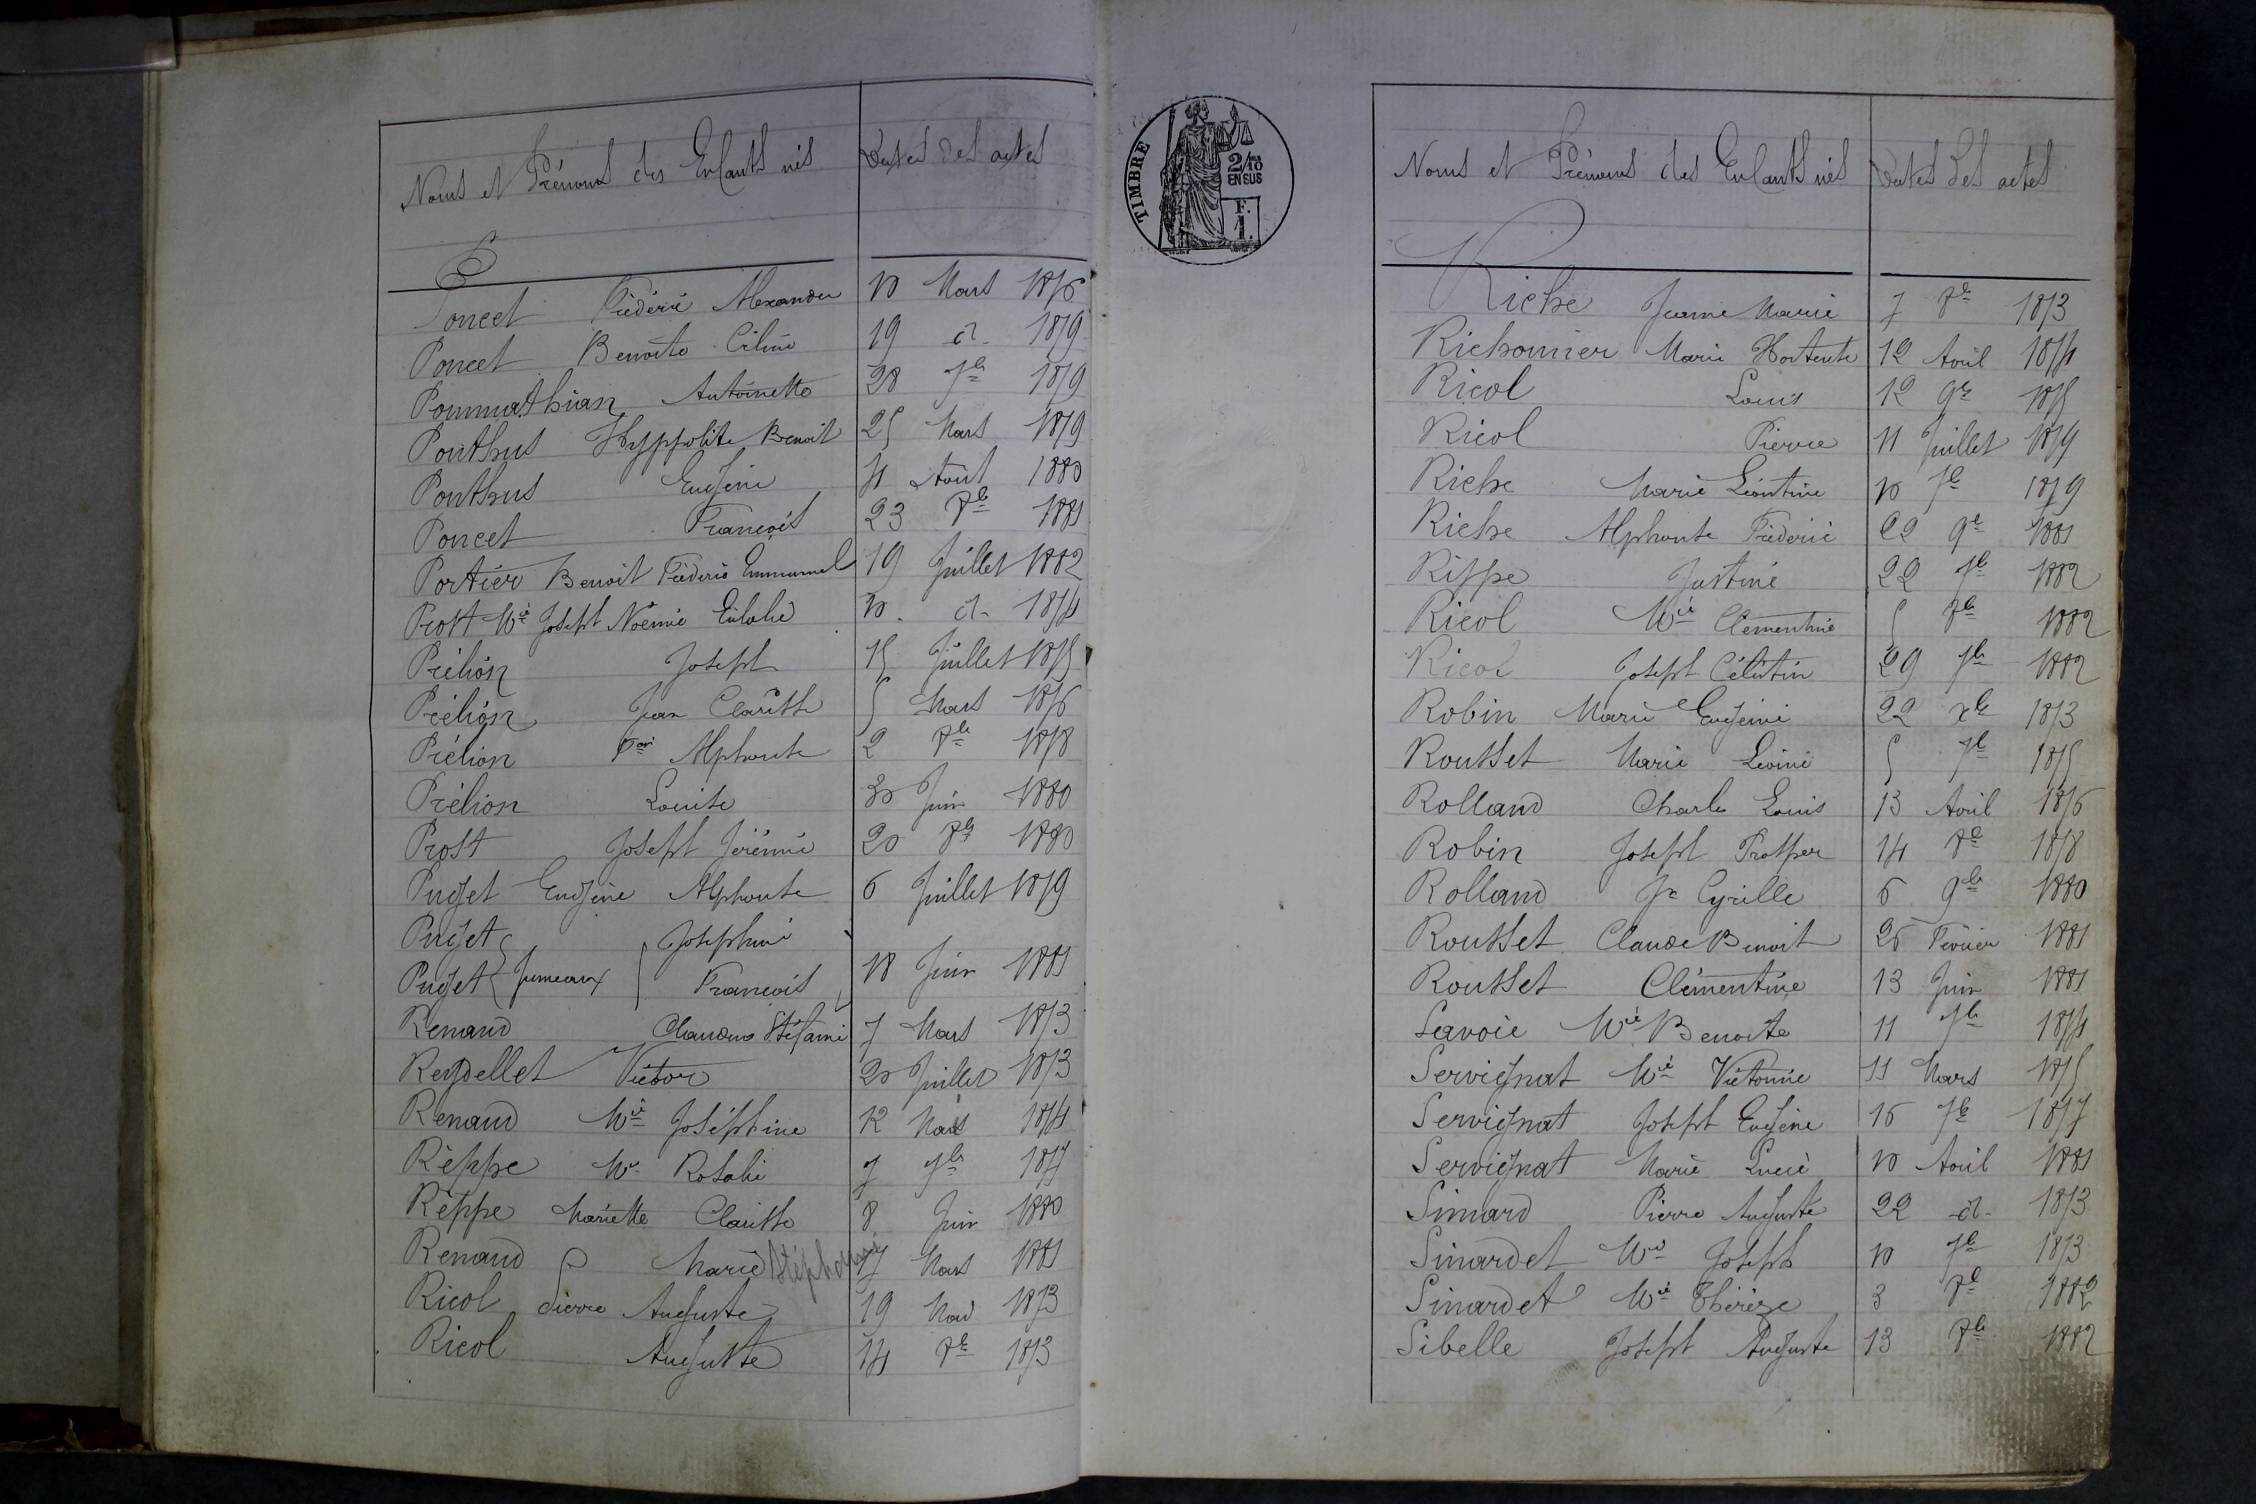 Noms et Prénoms des Enfants nés Dates des actes
Poncet Frédéric Alexandre 10 Mars 1876
Poncet Benoite Céline 19 d- 1879
Pommathian Antoinette 28 7bre 1879
Ponthus Hyppolite Benoit 25 Mars 1879
Ponthus Eugénie 4 Août 1880
Poncet François 23 1881
Portier Benoit Fréderic Emmanuel 19 Juillet 1882
Prost Mie Joseph Noémie Eulalie 10 d- 1874
Prélion Joseph 15 Juillet 1875
Prélion Jean Clarisse 5 Mars 1876
Prélion Fçois Alphonse 2 1878
Prélion Louise 30 Juin 1880
Prost Joseph Jérémie 20 1880
Puget Eugène Alphonse 6 Juillet 1879
Puget Joséphine
Puget Jumeaux François 18 Juin 1881
Renaud Claudius Stéfanie 7 Mars 1873
Reydellet Victor 20 Juillet 1873
Renaud Mie Joséphine 12 Mars 1874
Réppe Mie Rosalie 7 1877
Réppe Mariette Clarisse 8 Juin 1880
Renaud Marie Stéphanie 17 Mars 1881
Ricol Pierre Auguste 19 1873
Ricol Auguste 14 1873
TIMBRE
2/10 EN SUS
F. 1.
Noms et Prénoms des Enfants nés Dates des actes
Riche Jeanne Marie 7 1873
Richonnier Marie Hortense 12 Avril 1874
Ricol Louis 12 9re 1875
Ricol Pierre 11 Juillet 1879
Riche Marie Léontine 10 7bre 1879
Riche Alphonse Fréderic 22 9re 1881
Rippe Justine 22 7bre 1882
Ricol Mie Clementine 5 1882
Ricol Joseph Célestin 29 7bre 1882
Robin Marie Eugénie 22 xbre 1873
Rousset Marie Léonie 5 7bre 1875
Rolland Charles Louis 13 Avril 1876
Robin Joseph Prosper 14 1878
Rolland Jn Cyrille 6 9bre 1880
Rousset Claude Benoit 26 Février 1881
Rousset Clémentine 13 Juin 1881
Savoie Mie Benoite 11 7bre 1874
Servignat Mie Victorine 11 Mars 1875
Servignat Joseph Eugène 16 7bre 1877
Servignat Marie Lucie 10 Avril 1881
Simard Pierre Auguste 22 d- 1873
Sinardet Mie Joseph 10 7bre 1873
Sinardet Mie Thérèze 3 1882
Sibelle Joseph Auguste 13 1882